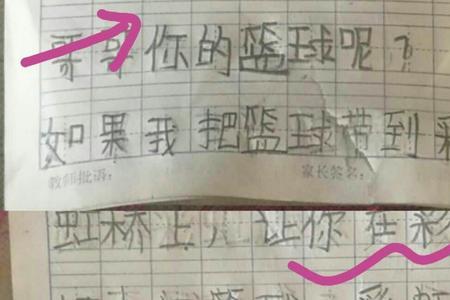 哥哥你的篮球呢？
如果我把篮球带到彩
教师批语： 家长签名：
虹桥上，让你在彩